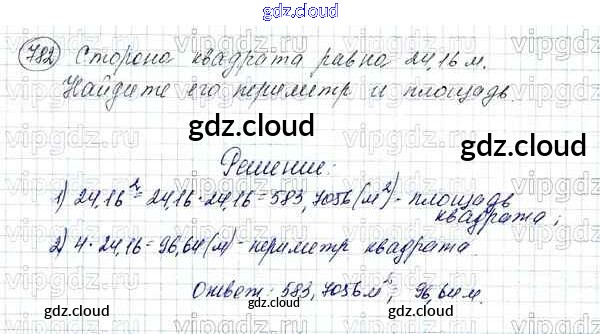 gdz.cloud
782 Сторона квадрата равна 24,16 м.
Найдите его периметр и площадь.
gdz.cloud gdz.cloud
Решение:
1) 24,16² = 24,16 · 24,16 = 583,7056 (м²) - площадь
квадрата;
2) 4 · 24,16 = 96,64 (м) - периметр квадрата
Ответ: 583,7056 м²; 96,64 м.
gdz.cloud gdz.cloud